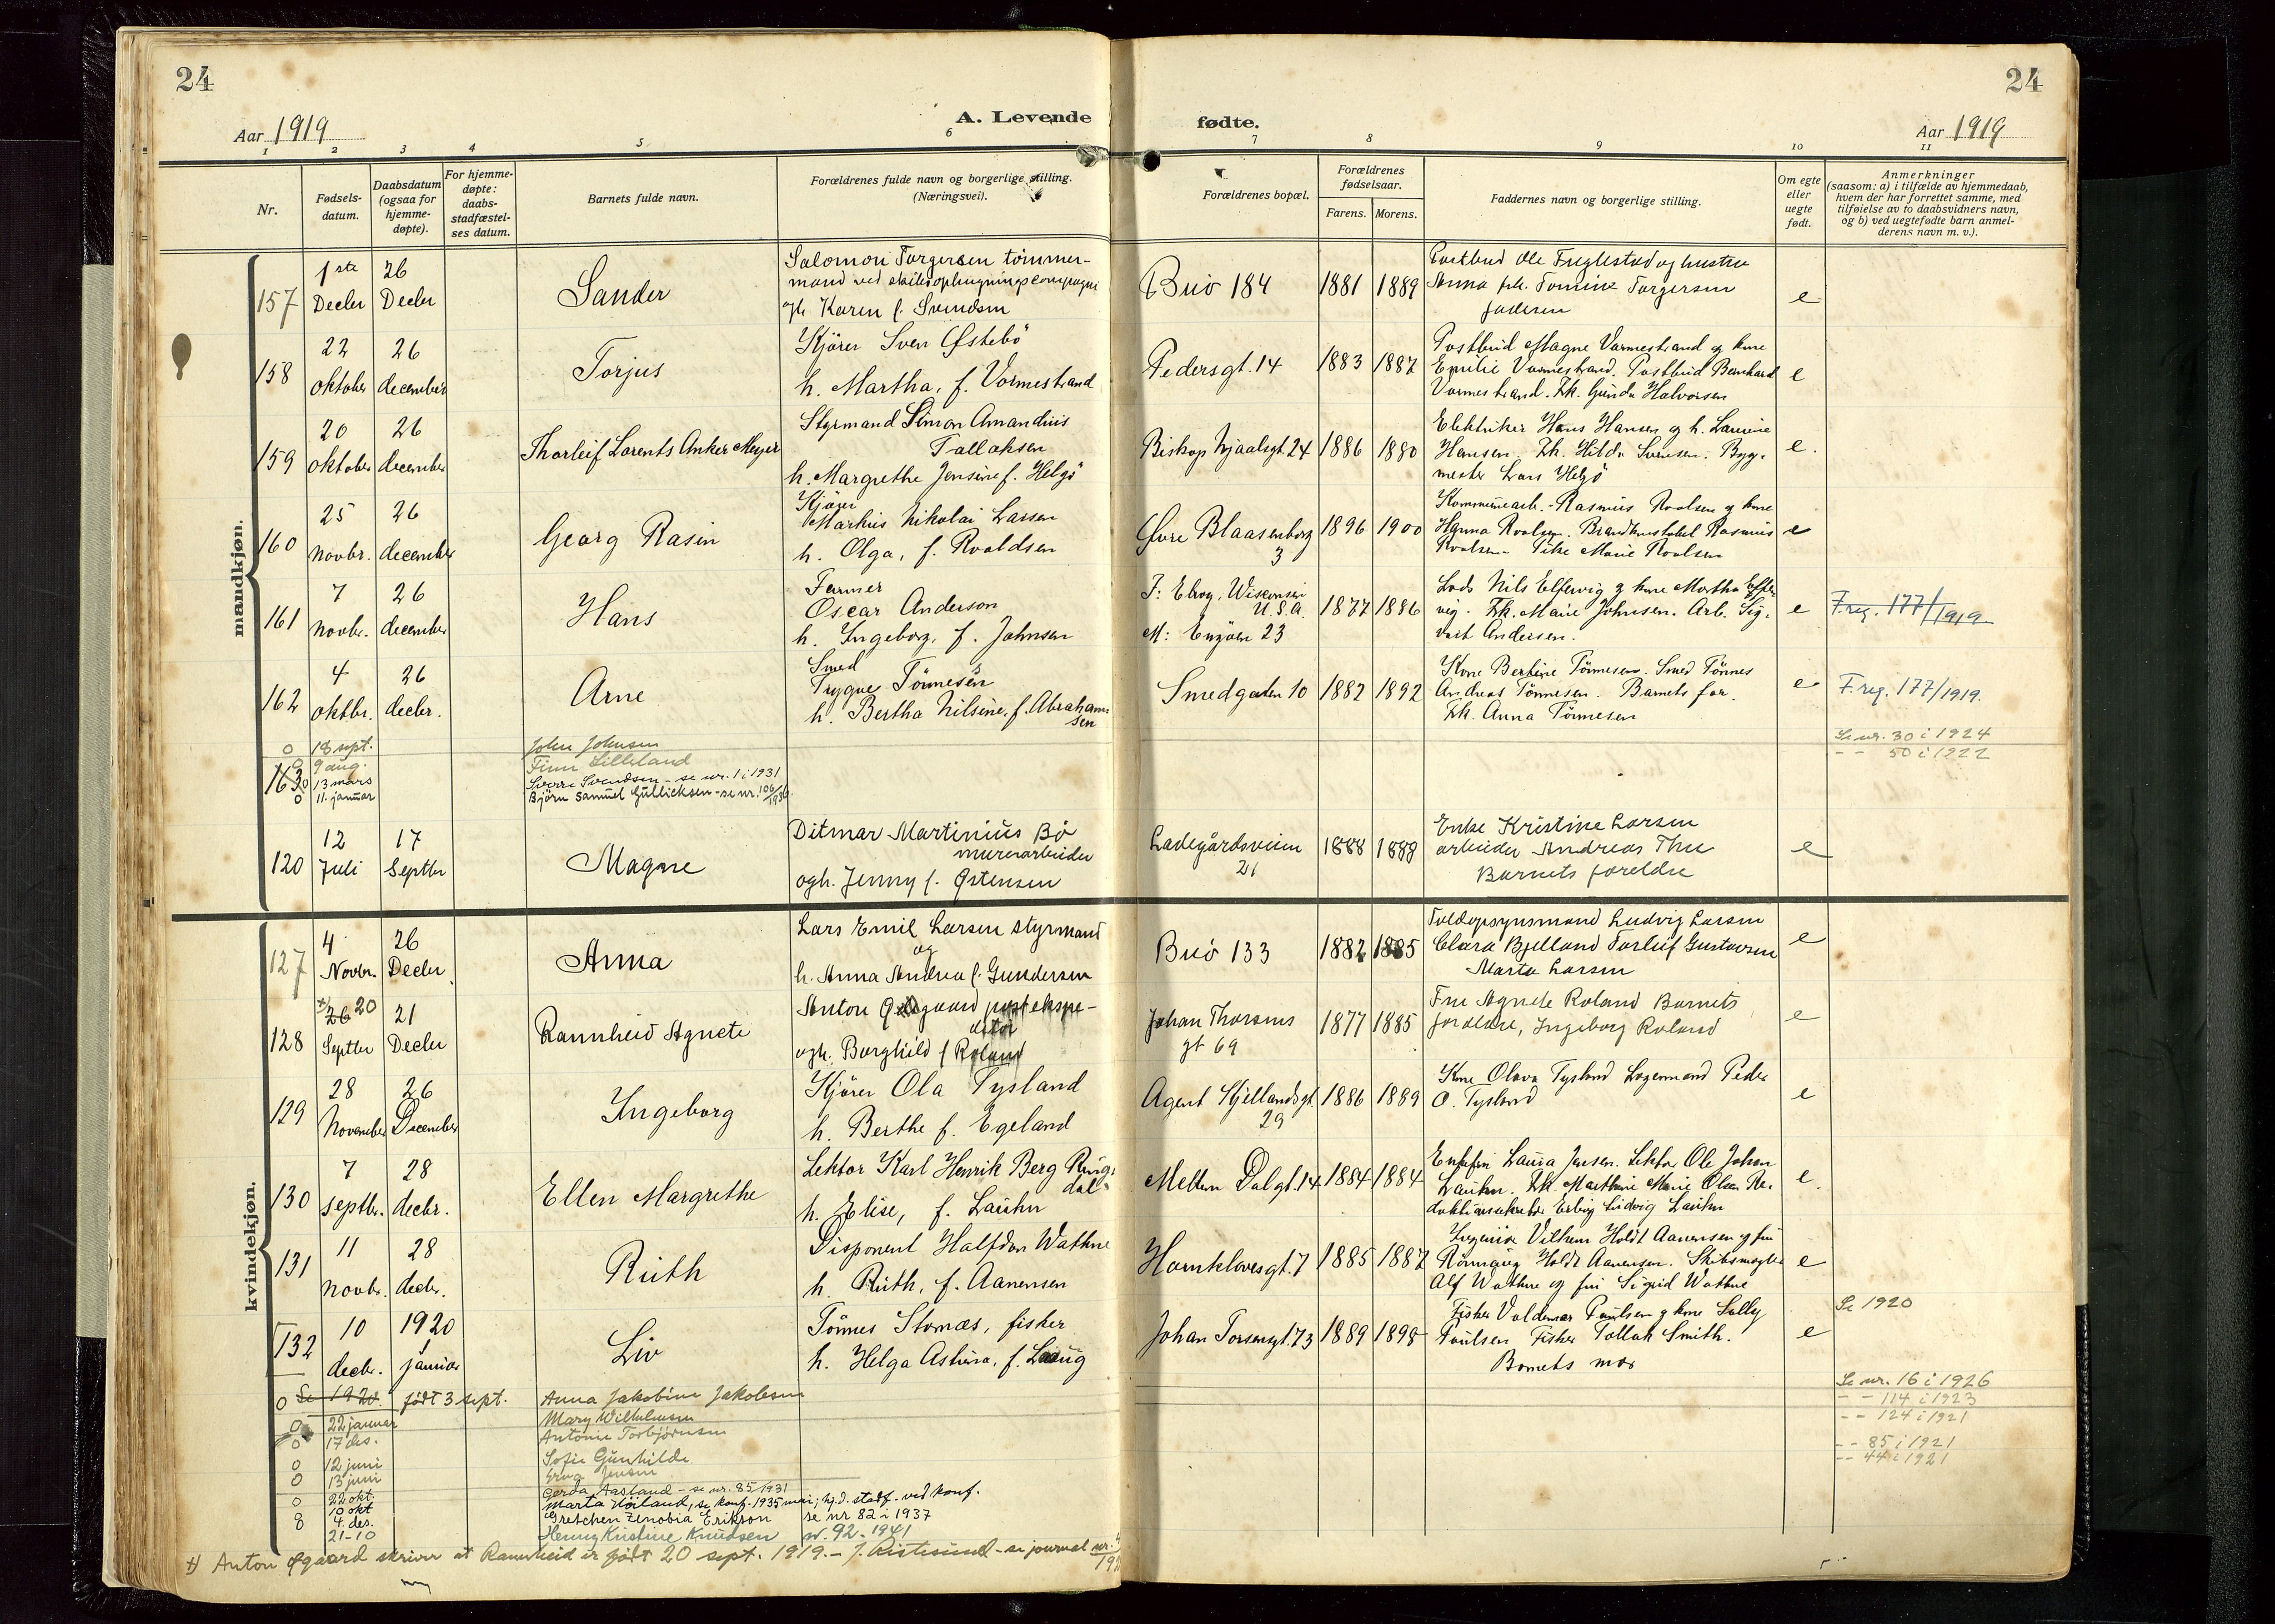 24
24
Aar 1919
A. Levende
fødte.
Aar 1919
1 2 3 4 5 6 7 8 9 10 11
Nr.
Fødsels-
datum.
Daabsdatum
(ogsaa for
hjemme-
døpte).
For hjemme-
døpte:
daabs-
stadfæstel-
ses datum.
Barnets fulde navn.
Forældrenes fulde navn og borgerlige stilling.
(Næringsvei).
Forældrenes bopæl.
Forældrenes
fødselsaar.
Farens. Morens.
Faddernes navn og borgerlige stilling.
Om egte
eller
uegte
født.
Anmerkninger
(saasom: a) i tilfælde av hjemmedaab,
hvem der har forrettet samme, med
tilføielse av to daabsvidners navn,
og b) ved uegtefødte barn anmel-
derens navn m. v.).
mandkjøn.
157
1ste
Decbr
26
Decbr
Sander
Salomon Torgersen tømmer-
mand ved skibsophugningscompagni
gh Karen f. Svendsen
Buø 184
1881 1889
Postbud Ole Fuglestad og hustru
Anna frk. Tomine Torgersen
faderen
e
158
22
oktober
26
december
Torjus
Kjører Sven Østebö
h. Martha, f. Vormestrand
Pedersgt. 14
1883 1887
Postbud Magne Varmestrand og kone
Emilie Varmestrand. Postbud Bernhard
Varmestrand. Frk. Gunda Halvorsen
e
159
20
oktober
26
december
Thorleif Lorents Anker Meyer
Styrmand Simon Amandius
Tallaksen
h. Margrethe Jensine f. Helgö
Biskop Njaalsgt. 24
1886 1880
Elektriker Hans Hansen og h. Laurine
Hansen. Frk. Hilda Svensen. Byg-
mester Lars Helgö
e.
160
25
novbr.
26
december
Georg Rasin
Kjører
Markus Nikolai Lassen
h. Olga, f. Roaldsen
Øvre Blaasenborg
3
1896 1900
Kommunearb. Rasmus Roalsen og kone
Hanna Roalsen. Brandkonstabel Rasmus
Roalsen. Pike Marie Roalsen
e
161
7
novbr.
26
december
Hans
Farmer
Oscar Anderson
h. Ingeborg, f. Johnsen
F: Elroy, Wisconsin
U.S.A.
M: Engöen 23
1877 1886
Lods Nils Elfervig og kone Martha Elfer-
vig. Frk. Marie Johnsen. Arb. Sig-
vart Andersen.
e
F.reg. 177/1919
162
4
oktbr.
26
decbr.
Arne
Smed
Trygve Tönnesen
h. Bertha Nilsine, f. Abraham-
sen
Smedgaden 10
1882 1892
Kone Bertine Tönnesen. Smed Tönnes
Andreas Tönnesen. Barnets far.
Frk. Anna Tönnesen
e
F.reg. 177/1919.
0 18 sept. John Johnsen Se nr. 30 i 1924
0 9 aug. Finn Lilleland - - 50 i 1922
163
0 13 mars Sverre Svendsen - se nr. 1 i 1931
0 11. januar Björn Samuel Gullicksen - se nr. 106/1936
120
12
Juli
17
Septbr
Magne
Ditmar Martinius Bö
murerarbeider
ogh. Jenny f. Østensen
Ladegårdsveien
21
1888 1888
Enke Kristine Larsen
arbeider Andreas Thu
Barnets foreldre
e
kvindekjøn.
127
4
Novbr.
26
Decbr.
Anna
Lars Emil Larsen styrmand
og
h. Anna Andrea f. Gundersen
Buö 133
1882 1885
Toldopsynsmand Ludvig Larsen
Clara Bjelland Torleif Gustavsen
Marta Larsen
e
128
x/ 26 20
Septbr
21
Decbr
Rannheid Agnete
Anton Øgaard postekspe-
ditør
ogh. Borghild f Roland
Johan Thorsens
gt 69
1877 1885
Fru Agnete Roland Barnets
foreldre, Ingeborg Roland
e
129
28
November
26
December
Ingeborg
Kjører Ola Tysland
h. Berthe f. Egeland
Agent Kjellandsgt.
29
1886 1889
Kone Olava Tysland Lagermand Peder
O. Tysland
e
130
7
septbr.
28
decbr.
Ellen Margrethe
Lektor Karl Henrik Berg Rings-
dal
h. Elise, f. Lauhn
Mellem Dalgt. 14
1884 1884
Enkefru Laura Jensen. Lektor Ole Johan
Lauhn. Frk Marthine Marie Olsen Re-
daktionssekretær Erling Ludvig Lauhn
e.
131
11
novbr.
28
decbr.
Ruth
Disponent Halfdan Wathne
h. Ruth, f. Aanensen
Haraklovesgt. 7
1885 1887
Ingeniør Vilhem Holdt Aanensen og fru
Rönnaug Holdt Aanensen. Skibsmegler
Alf Wathne og fru Sigrid Wathne
e
132
10
decbr.
1920
1
januar
Liv
Tönnes Stornæs, fisker
h. Helga Astrira, f. Laug
Johan Torsensgt. 73
1889 1898
Fisker Valdemar Paulsen og kone Sally
Paulsen Fisker Tollak Smith.
Barnets mor
e
Se 1920
0 Se 1920 født 3 sept. Anna Jakobine Jakobsen Se nr. 16 i 1926
0 22 januar Mary Wilhelmsen - - 114 i 1923
0 17 des. Antonie Torbjørnsen - - 124 i 1921
0 12 juni Sofie Gunhilde - - 85 i 1921
0 13 juni Erna Jensen - - 44 i 1921
0 22 okt. Gerda Aasland - se nr. 85/1931
10 okt Marta Höiland, se konf. 1935 mai; hj.d. stadf. ved konf.
8 4. des. Gretchen Zenobia Erikson se nr 82 i 1937
21-10 Henny Kristine Knudsen nr. 92 - 1941
x/ Anton Øgaard skriver at Rannheid er født 20 sept. 1919. - J. Ristesund - se journal nr.